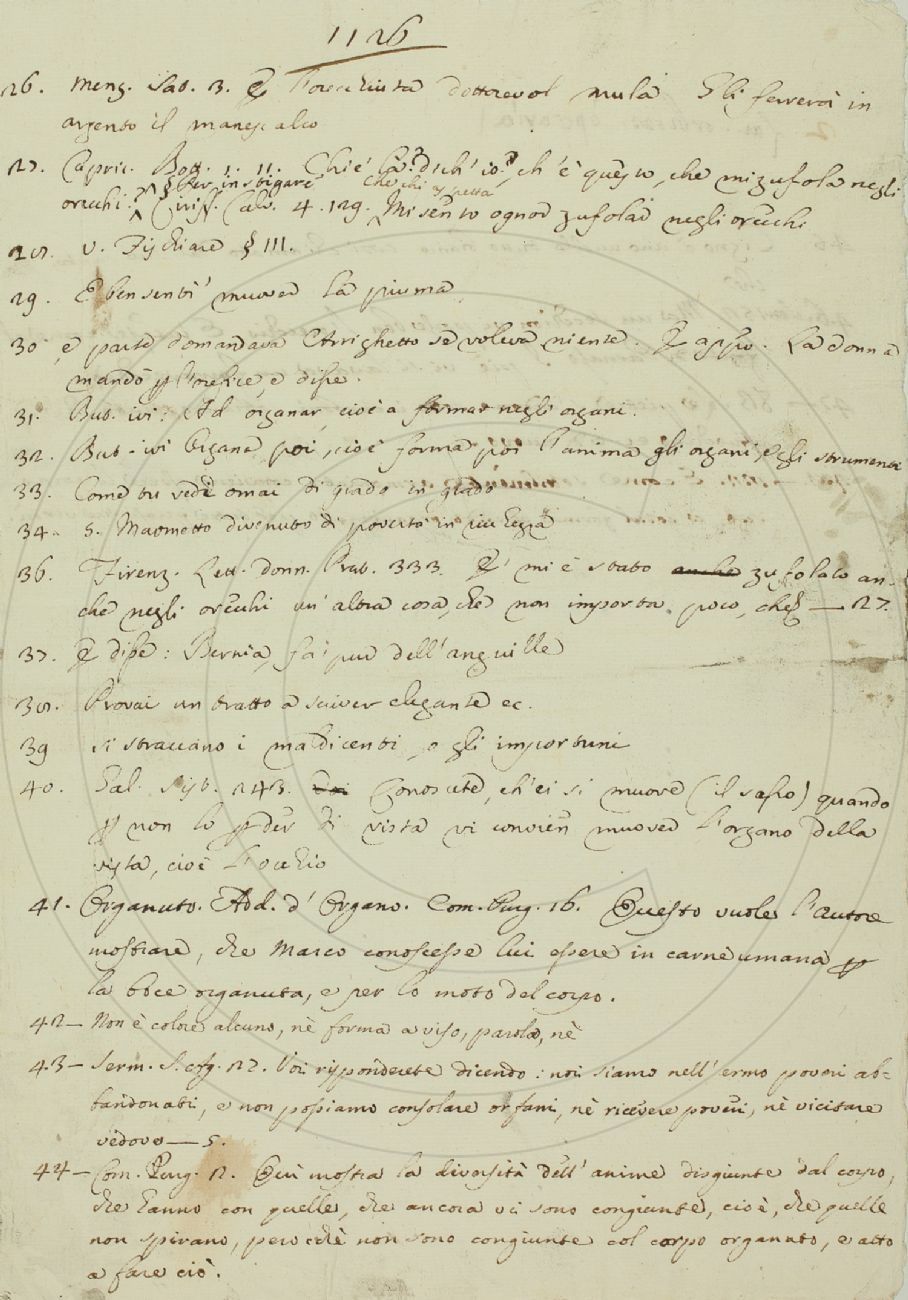 1126
26. Menz. Sat. 3. E l'orecchiuta dottorevol mula Gli ferrerai in
argento il manescalco
27. Capric. Bott. 1. 11. Chi è là? dich'io? ch'è questo, che mi zufola negli
orecchi? § Per instigare Che chi aspetta
Ciriff. Calv. 4. 129. Mi sento ognor zufolar negli orecchi
28. v. Fischiare § III.
29. E ben sentì muover la piuma
30 e parte domandava Arrighetto se voleva niente. E appr. La donna
mandò p l'orefice, e disse.
31. But. ivi: Ad organar, cioè a formar negli organi.
32. But. ivi Organa poi, cioè forma poi l'anima gli organi, e gli strumenti
33. Come tu vedi omai di grado in grado
34. S. Maometto divenuto di povertà in ricchezza
36. Firenz. Lett. Donn. Prat. 333. E' mi è stato anche zufolato an-
che negli orecchi un'altra cosa, che non importa poco, che — 27.
37. E disse: Bernia, fa' pur dell'anguille
38. Provai un tratto a scriver elegante ec.
39 si straccano i maldicenti, e gli importuni
40. Gal. Sist. 243. Conoscete, ch'ei si muove (il sasso) quando
p non lo pder di vista vi convien muover l'organo della
vista, cioè l'occhio
41. Organuto. Add. d'Organo. Com. Purg. 16. Questo vuole l'autore
mostrare, che Marco conoscesse lui essere in carne umana p
la boce organuta, e per lo moto del corpo.
42— Non è colore alcuno, nè forma a viso, parole, nè
43— Serm. S. Ag. 22. Voi risponderete dicendo: noi siamo nell'ermo poveri ab-
bandonati, e non possiamo consolare orfani, nè ricevere poveri, nè vicitare
vedove — 5.
44— Com. Purg. 2. Qui mostra la diversità dell'anime disgiunte dal corpo,
che hanno con quelle, che ancora vi sono congiunte, cioè, che quelle
non spirano, però chè non sono congiunte col corpo organuto, e atto
a fare ciò.